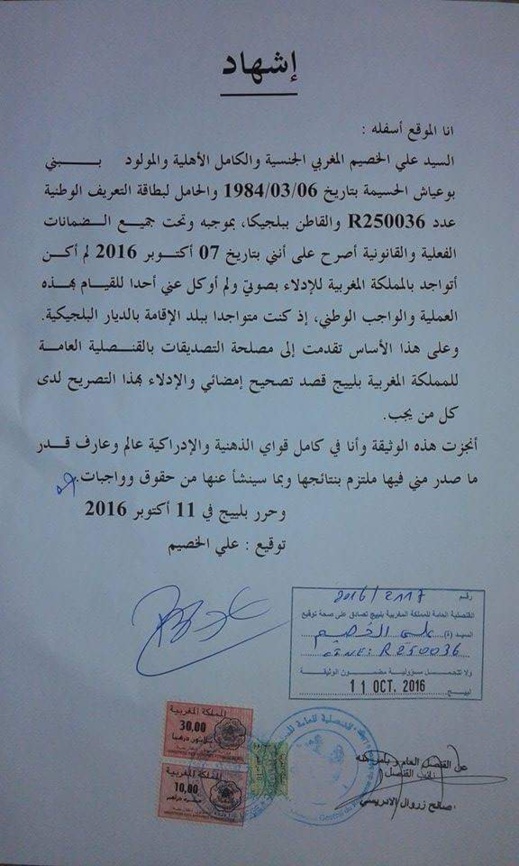 إشهاد
انا الموقع أسفله :
السيد علي الخصيم المغربي الجنسية والكامل الأهلية والمولود ببني
بوعياش الحسيمة بتاريخ 1984/03/06 والحامل لبطاقة التعريف الوطنية
عدد R250036 والقاطن ببلجيكا، بموجبه وتحت جميع الضمانات
الفعلية والقانونية أصرح على أنني بتاريخ 07 أكتوبر 2016 لم أكن
أتواجد بالمملكة المغربية للإدلاء بصوتي ولم أوكل عني أحدا للقيام بهذه
العملية والواجب الوطني، إذ كنت متواجدا ببلد الإقامة بالديار البلجيكية.
وعلى هذا الأساس تقدمت إلى مصلحة التصديقات بالقنصلية العامة
للمملكة المغربية بلييج قصد تصحيح إمضائي والإدلاء بهذا التصريح لدى
كل من يجب.
أنجزت هذه الوثيقة وأنا في كامل قواي الذهنية والإدراكية عالم وعارف قدر
ما صدر مني فيها ملتزم بنتائجها وبما سينشأ عنها من حقوق وواجبات.
وحرر بلييج في 11 أكتوبر 2016
توقيع : علي الخصيم
رقم 2016/2117
القنصلية العامة للمملكة المغربية بلييج تصادق على صحة توقيع
السيد (ة) علي الخصيم
CINE: R250036
ولا تتحمل مسؤولية مضمون الوثيقة
لييج 11 OCT. 2016
المملكة المغربية
30,00
المملكة المغربية
10,00
عن القنصل العام وبأمر منه
نائب القنصل
صالح زروال الادريسي